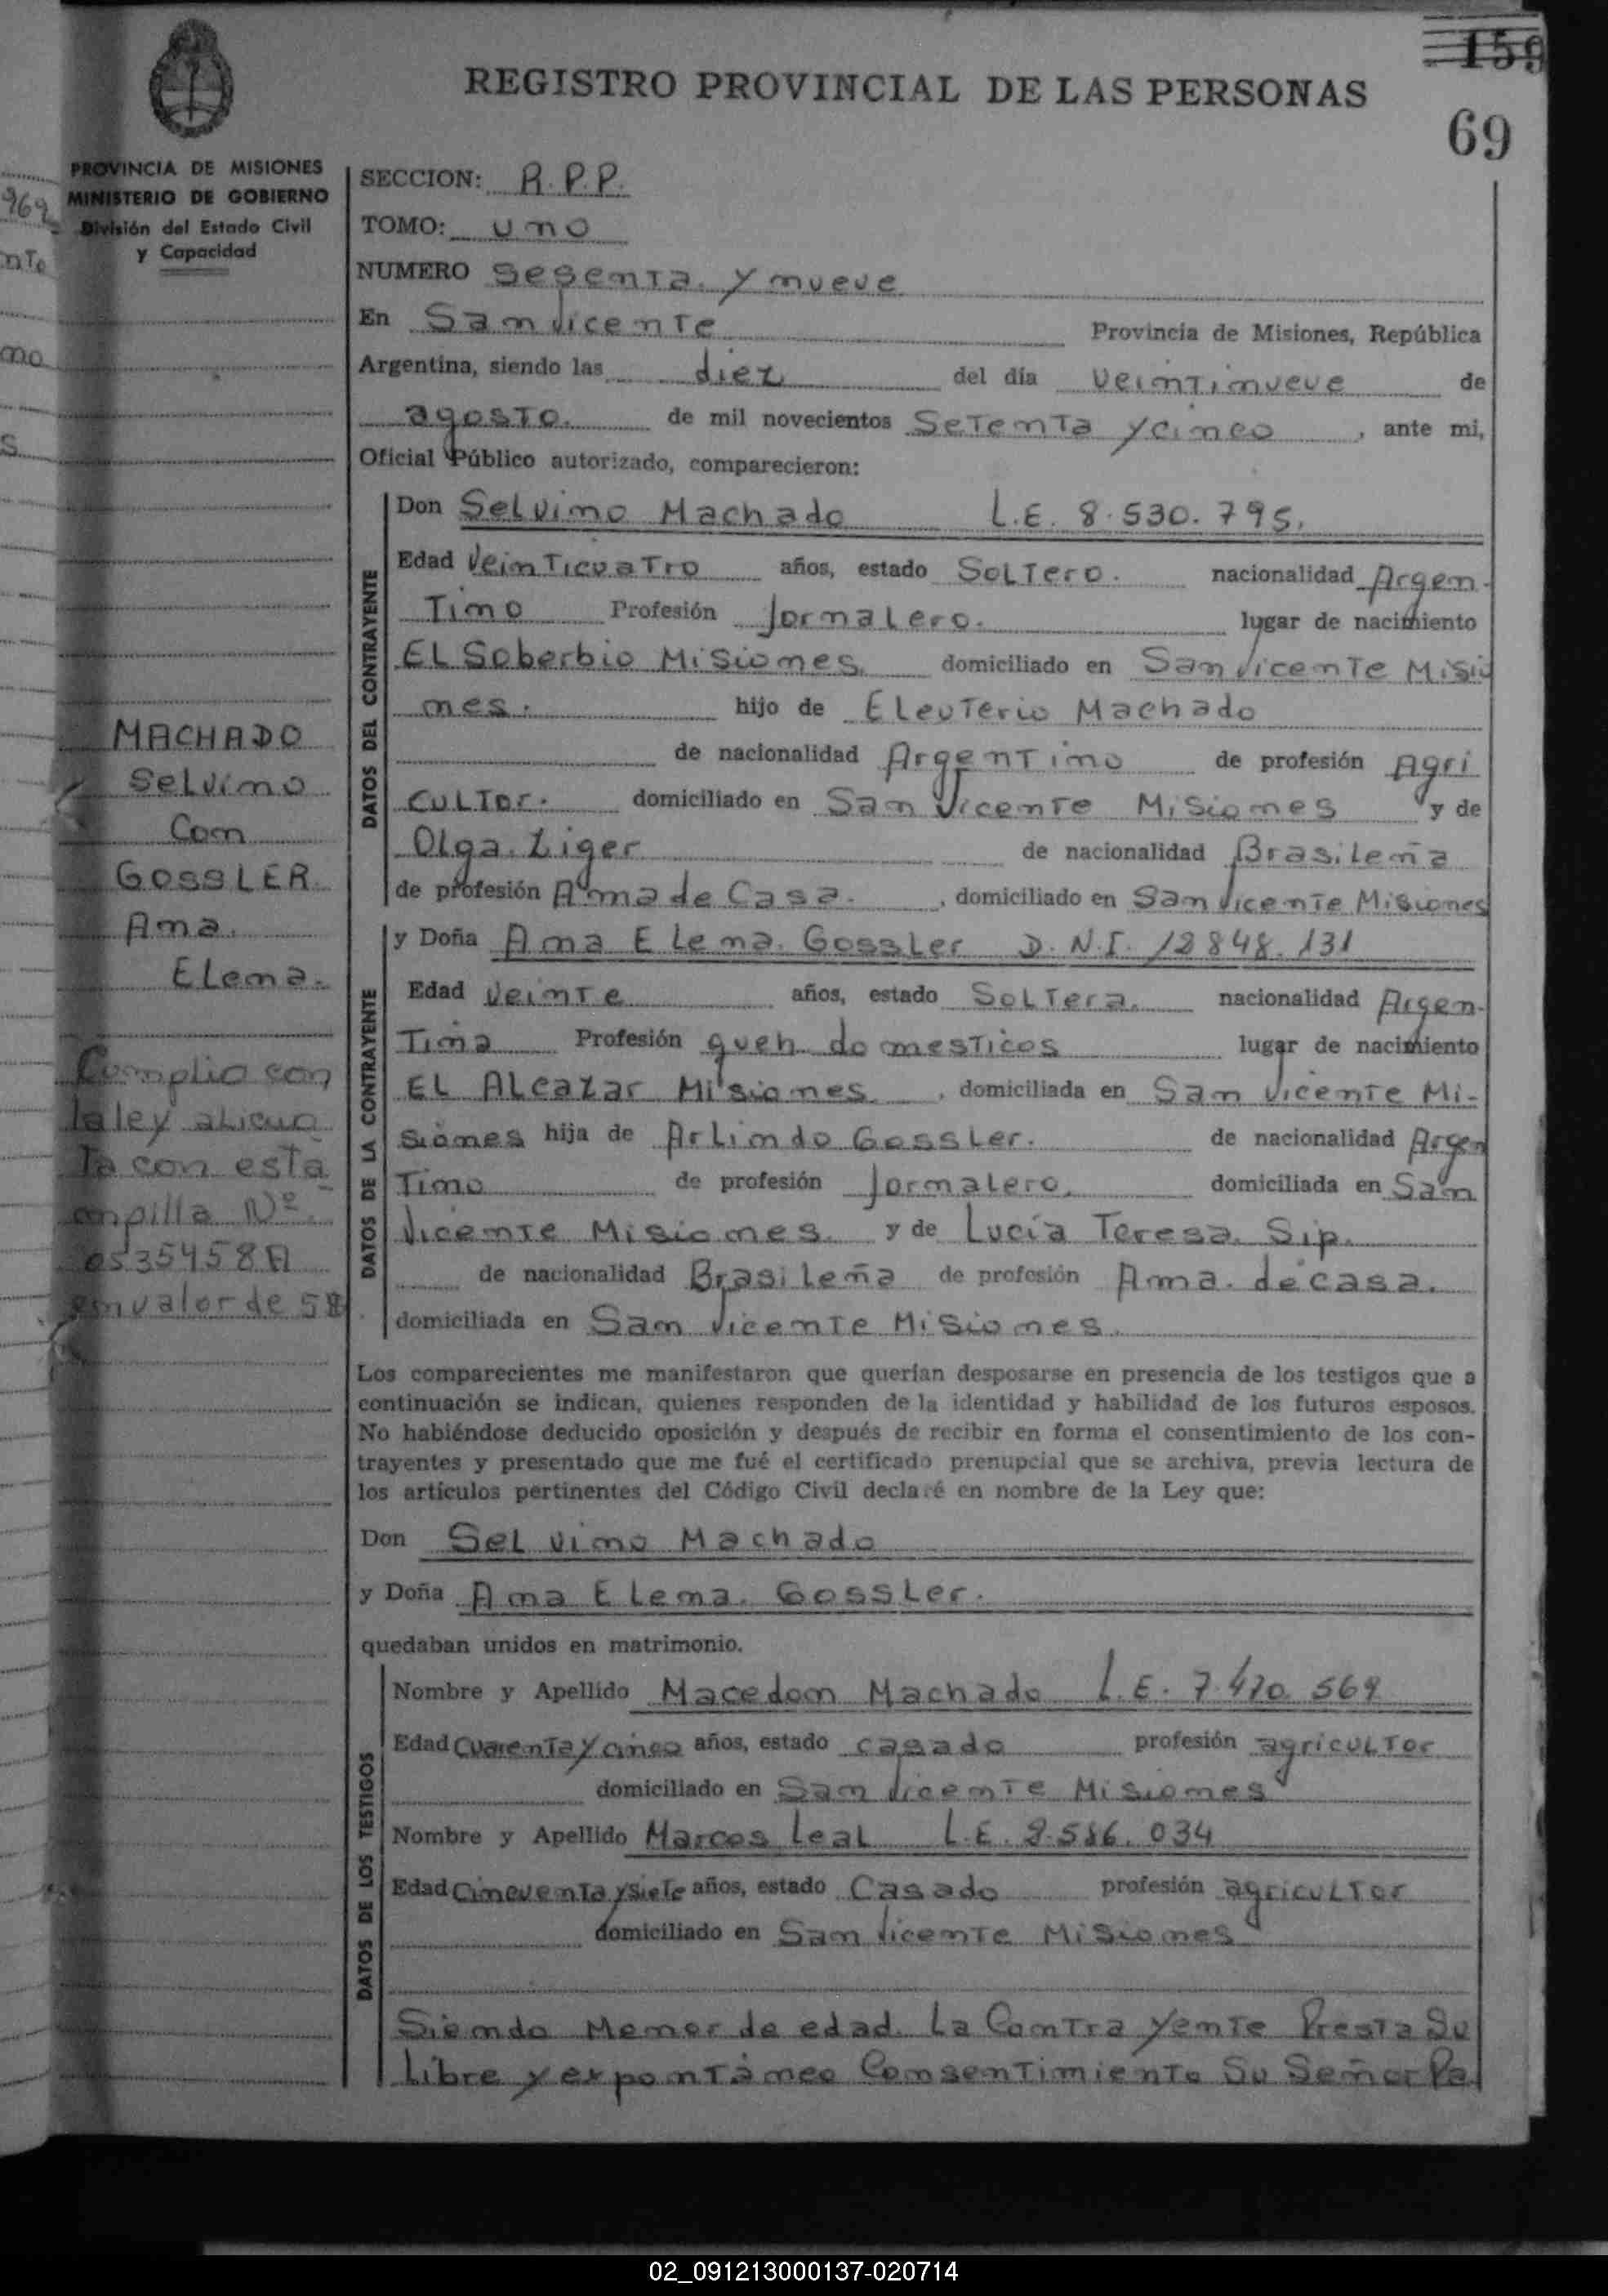 159
REGISTRO PROVINCIAL DE LAS PERSONAS
69
PROVINCIA DE MISIONES
MINISTERIO DE GOBIERNO
División del Estado Civil
y Capacidad
SECCION: R.P.P.
TOMO: uno
NUMERO Sesenta y nueve
En San Vicente Provincia de Misiones, República
Argentina, siendo las diez del día veintinueve de
agosto. de mil novecientos Setenta y cinco, ante mi,
Oficial Público autorizado, comparecieron:
DATOS DEL CONTRAYENTE
Don Selvino Machado L.E. 8.530.795.
Edad veinticuatro años, estado Soltero. nacionalidad Argen-
tino Profesión Jornalero. lugar de nacimiento
El Soberbio Misiones. domiciliado en San Vicente Misio
nes. hijo de Eleuterio Machado
de nacionalidad Argentino de profesión Agri
cultor. domiciliado en San Vicente Misiones y de
Olga Ziger de nacionalidad Brasileña
de profesión Ama de Casa., domiciliado en San Vicente Misiones
DATOS DE LA CONTRAYENTE
y Doña Ana Elena Gossler D.N.I. 12848.131
Edad veinte años, estado Soltera. nacionalidad Argen-
tina Profesión queh domesticos lugar de nacimiento
El Alcazar Misiones, domiciliada en San Vicente Mi-
siones hija de Arlindo Gossler. de nacionalidad Argen
tino de profesión Jornalero. domiciliada en San
Vicente Misiones. y de Lucía Teresa Sip.
de nacionalidad Brasileña de profesión Ama de casa.
domiciliada en San Vicente Misiones.
MACHADO
Selvino
Con
GOSSLER
Ana
Elena.
Cumplio con
la ley alicuo
ta con esta
mpilla Nº
0535458A
en valor de 5$
Los comparecientes me manifestaron que querían desposarse en presencia de los testigos que a
continuación se indican, quienes responden de la identidad y habilidad de los futuros esposos.
No habiéndose deducido oposición y después de recibir en forma el consentimiento de los con-
trayentes y presentado que me fué el certificado prenupcial que se archiva, previa lectura de
los artículos pertinentes del Código Civil declaré en nombre de la Ley que:
Don Selvino Machado
y Doña Ana Elena Gossler.
quedaban unidos en matrimonio.
DATOS DE LOS TESTIGOS
Nombre y Apellido Macedon Machado L.E. 7.470.569
Edad Cuarenta y cinco años, estado casado profesión agricultor
domiciliado en San Vicente Misiones
Nombre y Apellido Marcos Leal L.E. 8.586.034
Edad Cincuenta y siete años, estado Casado profesión agricultor
domiciliado en San Vicente Misiones
Siendo Menor de edad La Contrayente Presta Su
Libre y expontáneo Consentimiento Su Señor Pa
02_091213000137-020714